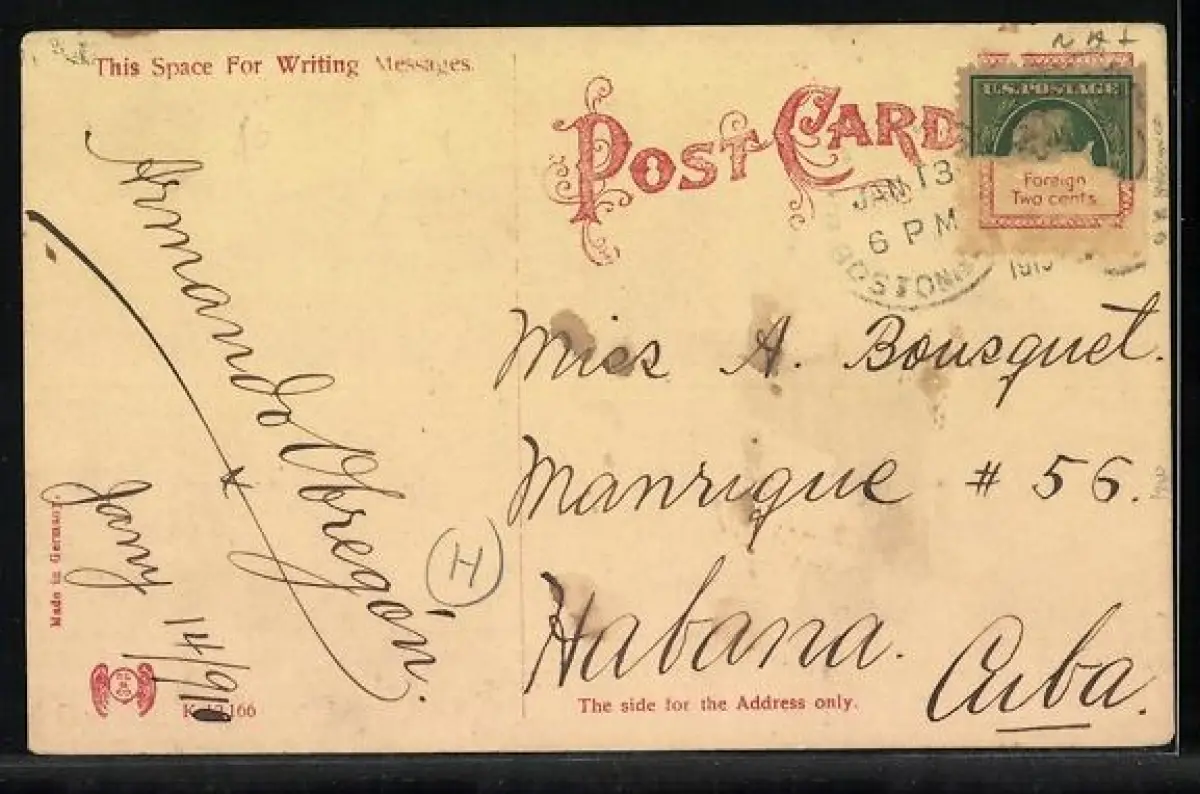 This Space For Writing Messages.
POST CARD
U.S. POSTAGE
Foreign
Two cents
JAN 13
6 PM
BOSTON
Armando Obregón.
Jany 14/910
Miss A. Bousquet.
Manrique # 56.
Habana.
Cuba.
H
Made in Germany.
The side for the Address only.